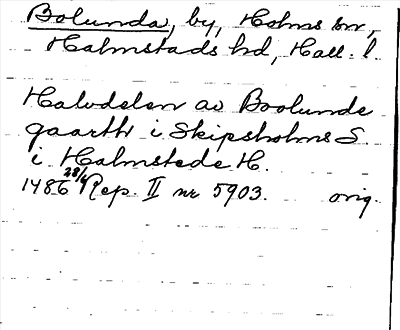 Bolunda, by, Holms sn,
Halmstads hd, Hall. l.
Halvdelen av Boolunde
gaarth i Skipsholms S.
i Halmstede H.
1486 28/6 Rep. II nr 5903. orig.